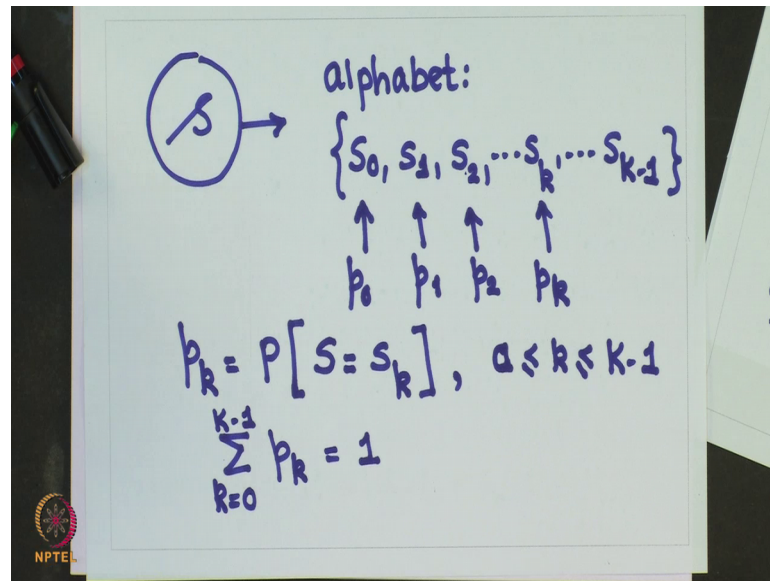 𝒮 → alphabet:
{S₀, S₁, S₂, ... Sₖ, ... S_{K-1}}
↑ ↑ ↑ ↑
p₀ p₁ p₂ pₖ
pₖ = P[S = sₖ], 0 ≤ k ≤ K-1
K-1
∑ pₖ = 1
k=0
NPTEL